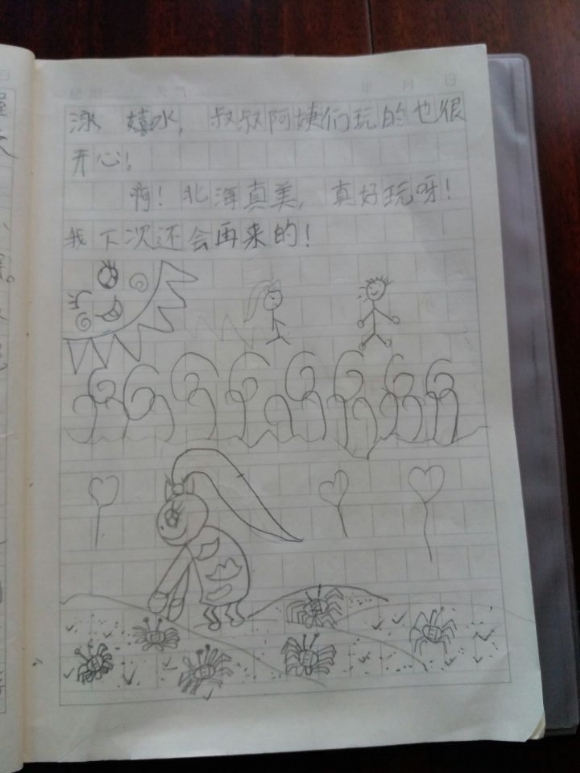 泳 嬉水，叔叔阿姨们玩的也很
开心！
啊！北海真美，真好玩呀！
我下次还会再来的！